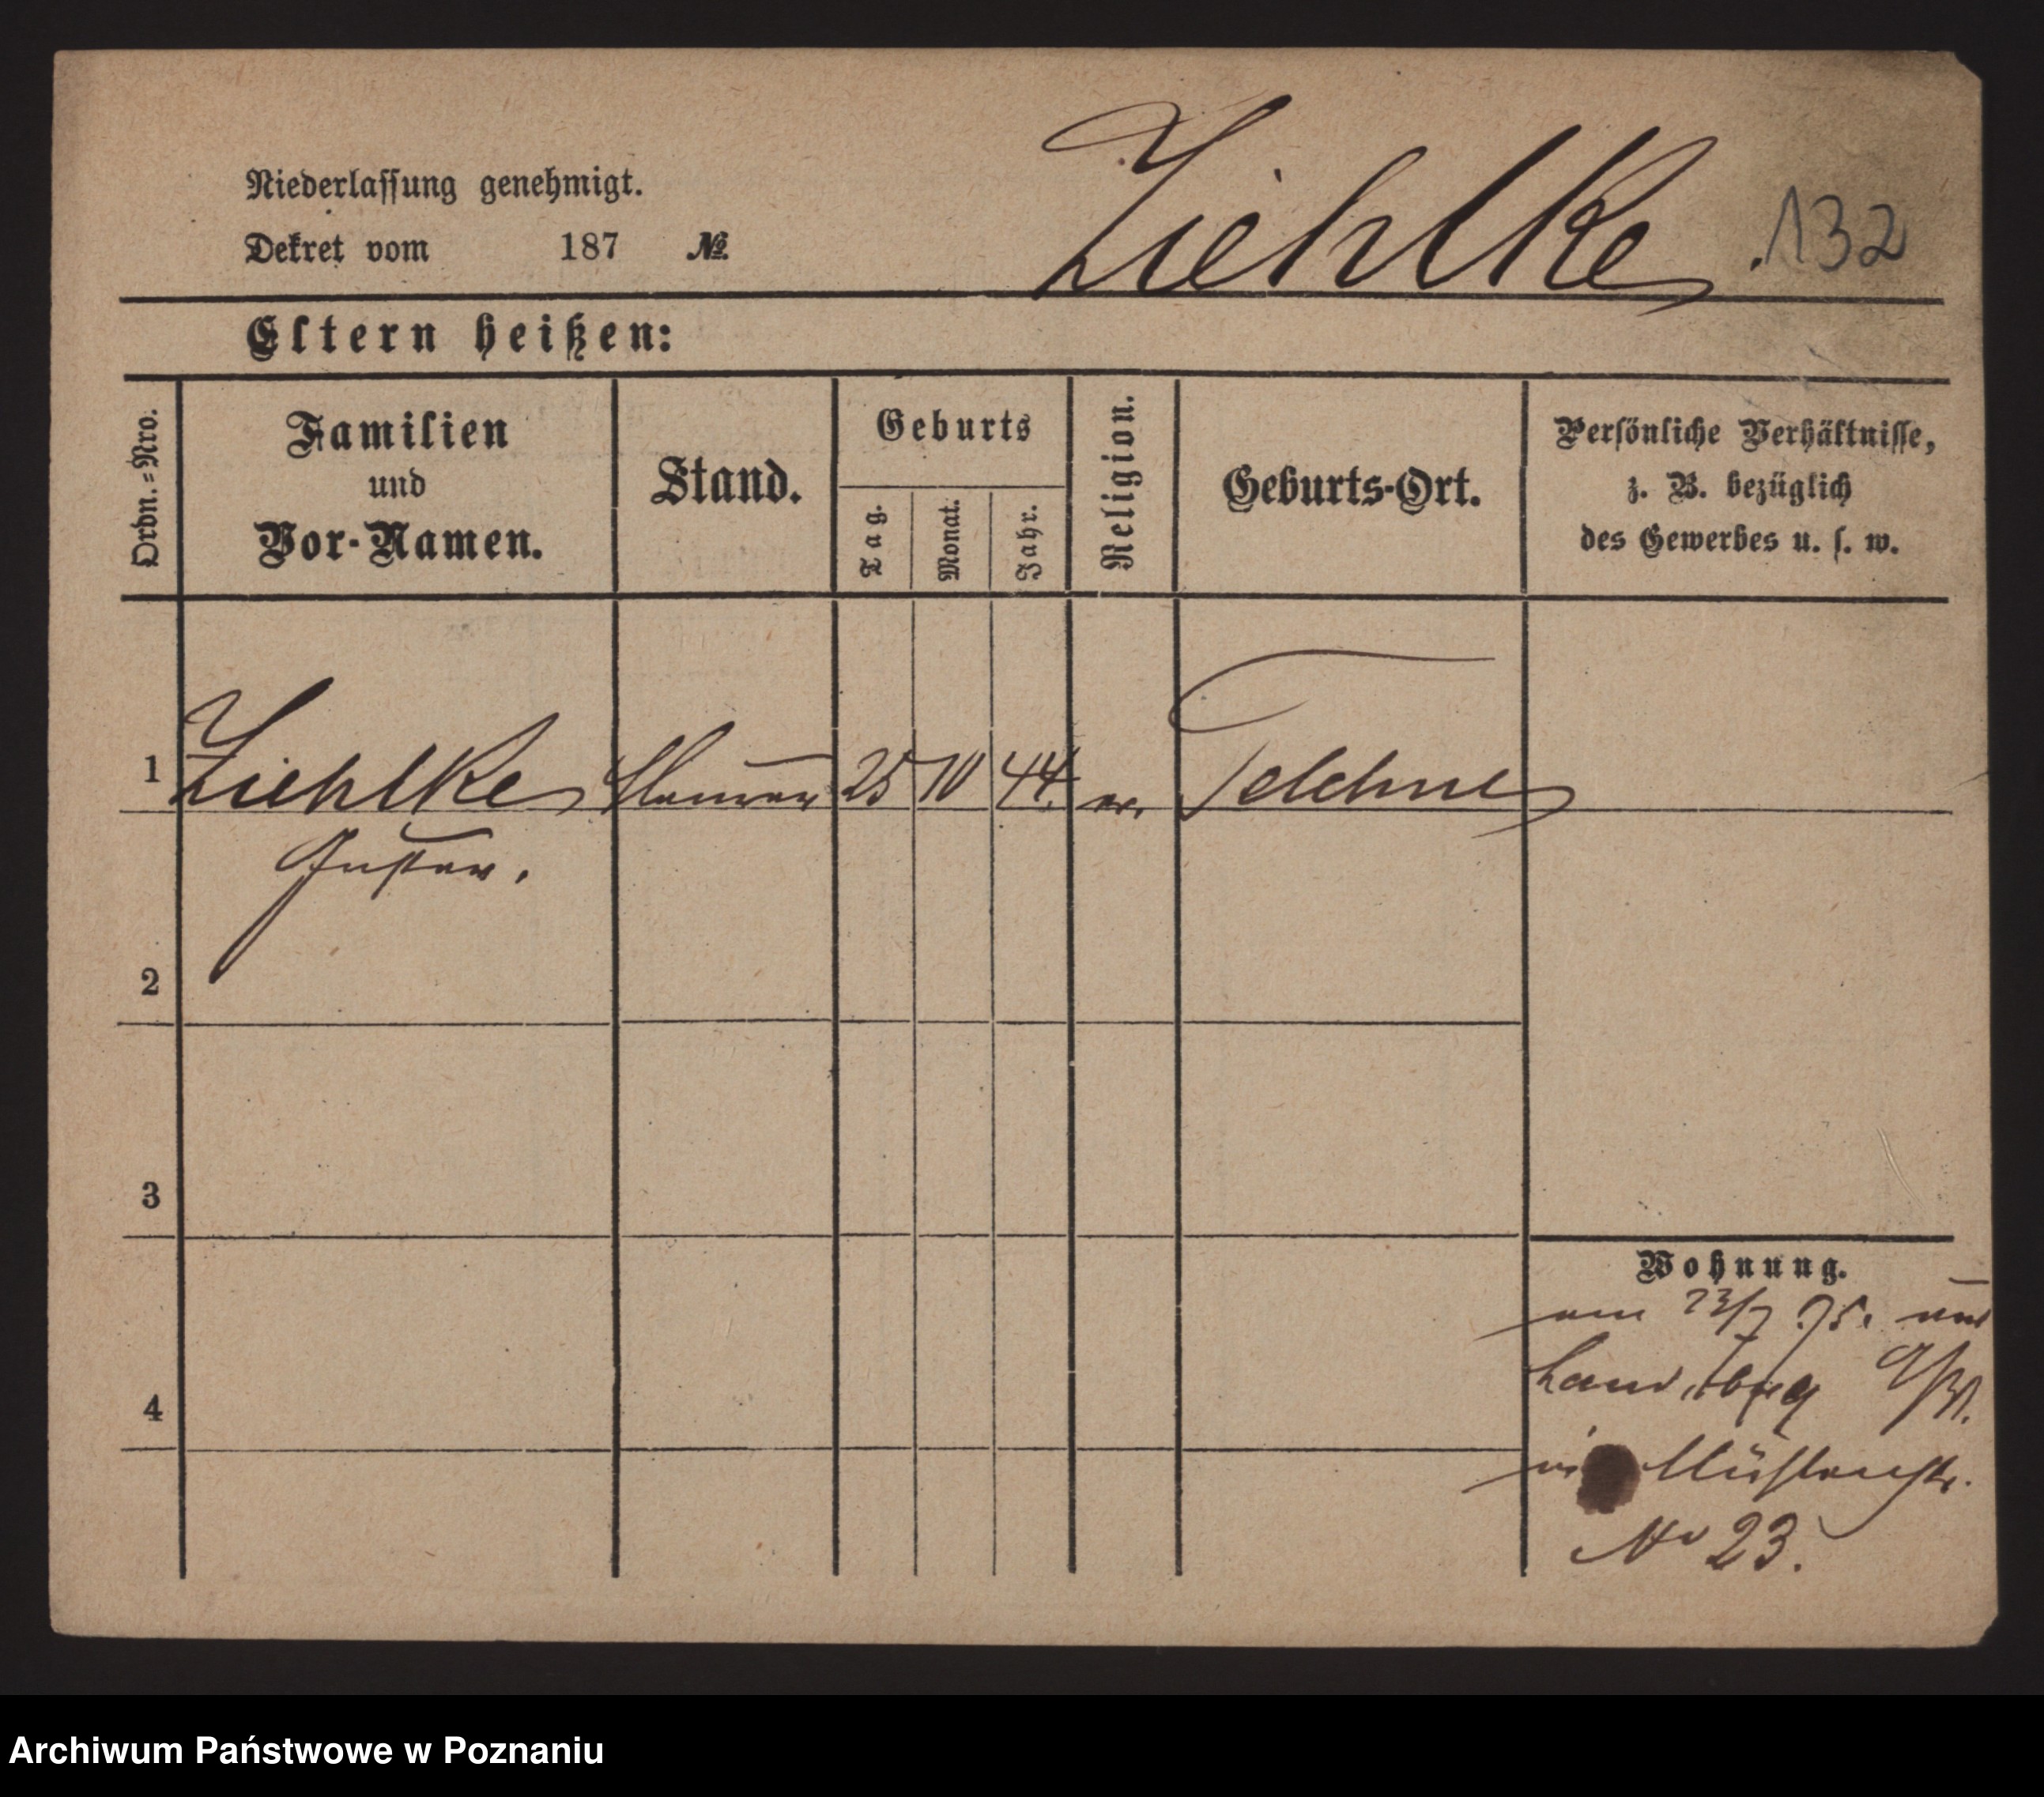 Niederlassung genehmigt.
Dekret vom 187 №
Ziehlke
132
Eltern heißen:
Ordn.-Nro.
Familien
und
Vor-Namen.
Stand.
Geburts
Tag.
Monat.
Jahr.
Religion.
Geburts-Ort.
Persönliche Verhältnisse,
z. B. bezüglich
des Gewerbes u. s. w.
1 Ziehlke Maurer 25 10 44. ev.
Gustav.
2
3
4
Wohnung.
am 23/7 75. aus
Landsberg a/W.
Mühlenstr.
No 23.
Archiwum Państwowe w Poznaniu